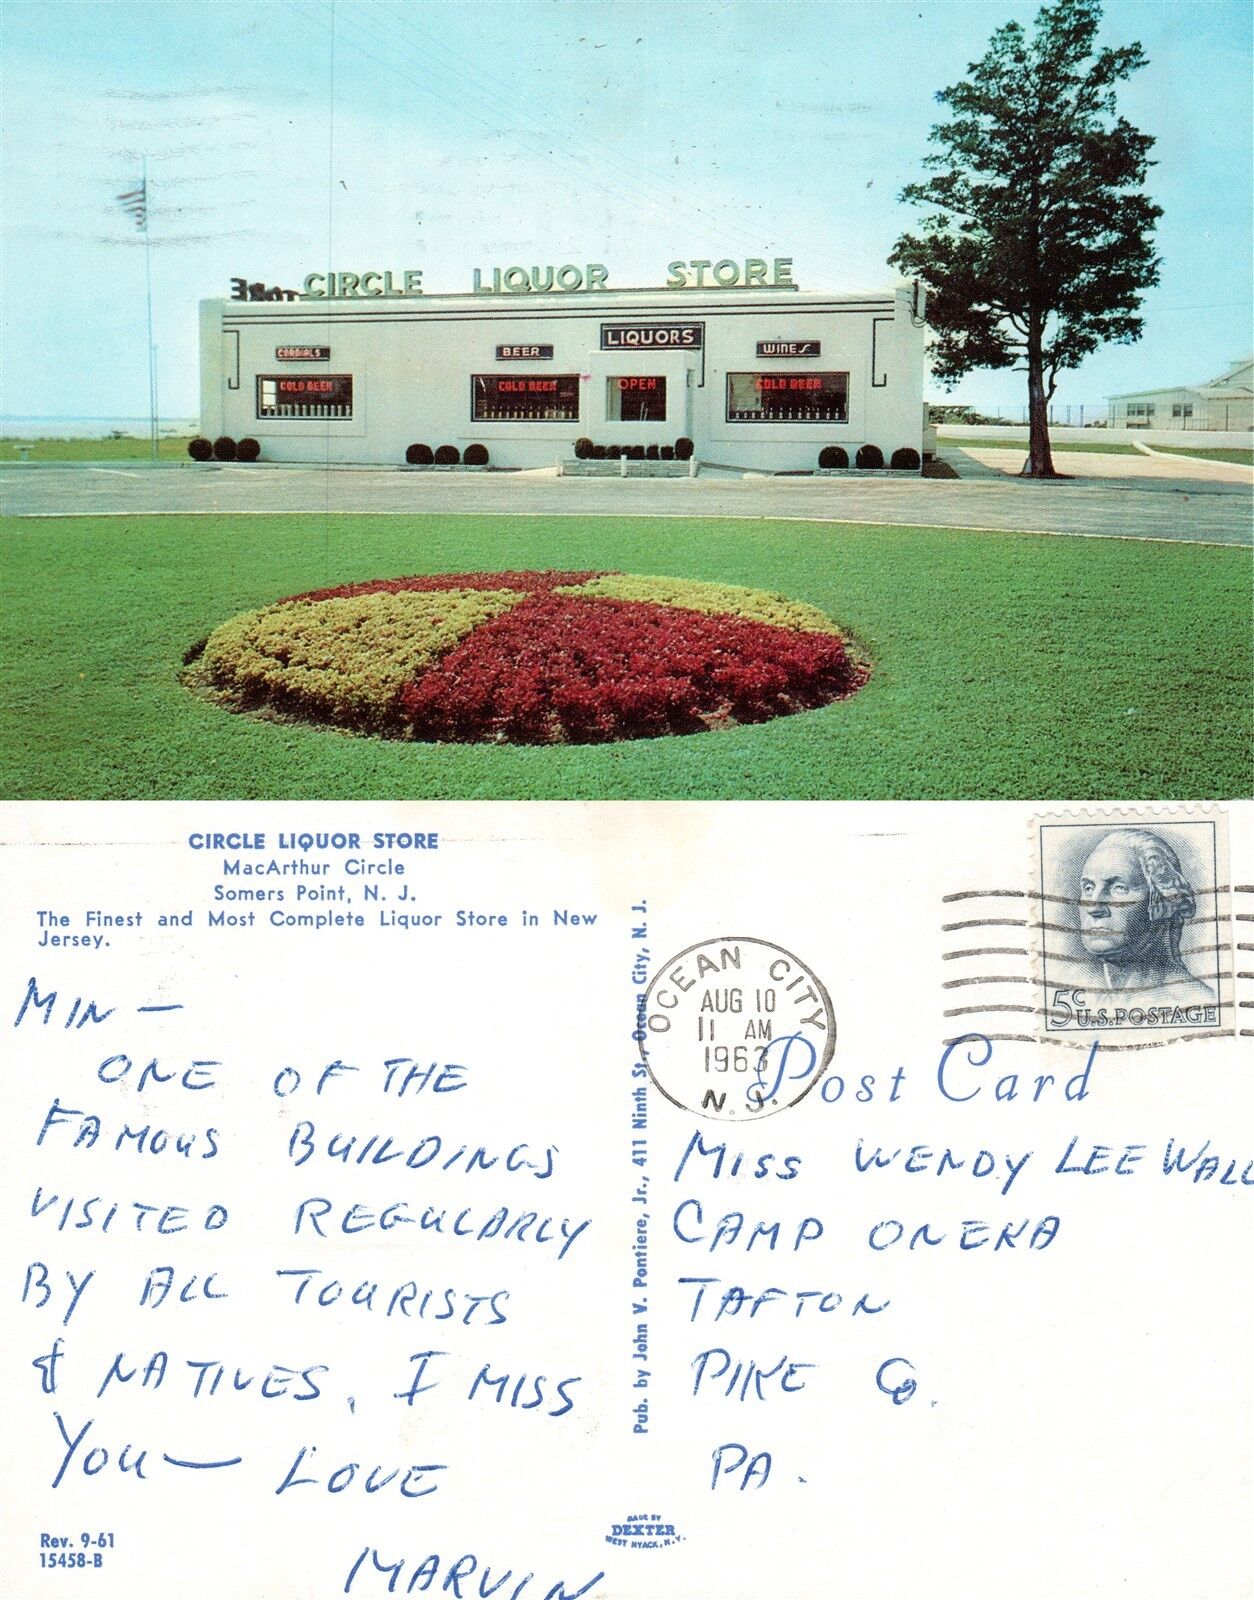 CIRCLE LIQUOR STORE
LIQUORS
CORDIALS
BEER
WINES
COLD BEER
COLD BEER
OPEN
COLD BEER
CIRCLE LIQUOR STORE
MacArthur Circle
Somers Point, N. J.
The Finest and Most Complete Liquor Store in New
Jersey.
MIN —
ONE OF THE
FAMOUS BUILDINGS
VISITED REGULARLY
BY ALL TOURISTS
& NATIVES. I MISS
YOU — LOVE
MARVIN
Rev. 9-61
15458-B
Pub. by John V. Pontiere, Jr., 411 Ninth St., Ocean City, N. J.
MADE BY
DEXTER
WEST NYACK, N.Y.
OCEAN CITY
AUG 10
11 AM
1963
N.J.
5c
U.S. POSTAGE
Post Card
MISS WENDY LEE WALL
CAMP ONEKA
TAFTON
PIKE Co.
PA.